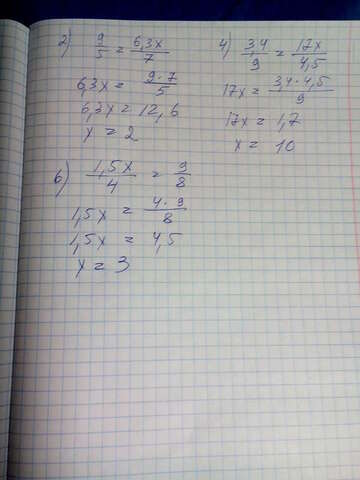 2) 9/5 = 6,3x/7
6,3x = 9·7/5
6,3x = 12,6
x = 2
4) 3,4/9 = 17x/4,5
17x = 3,4·4,5/9
17x = 1,7
x = 10
6) 1,5x/4 = 9/8
1,5x = 4·9/8
1,5x = 4,5
x = 3